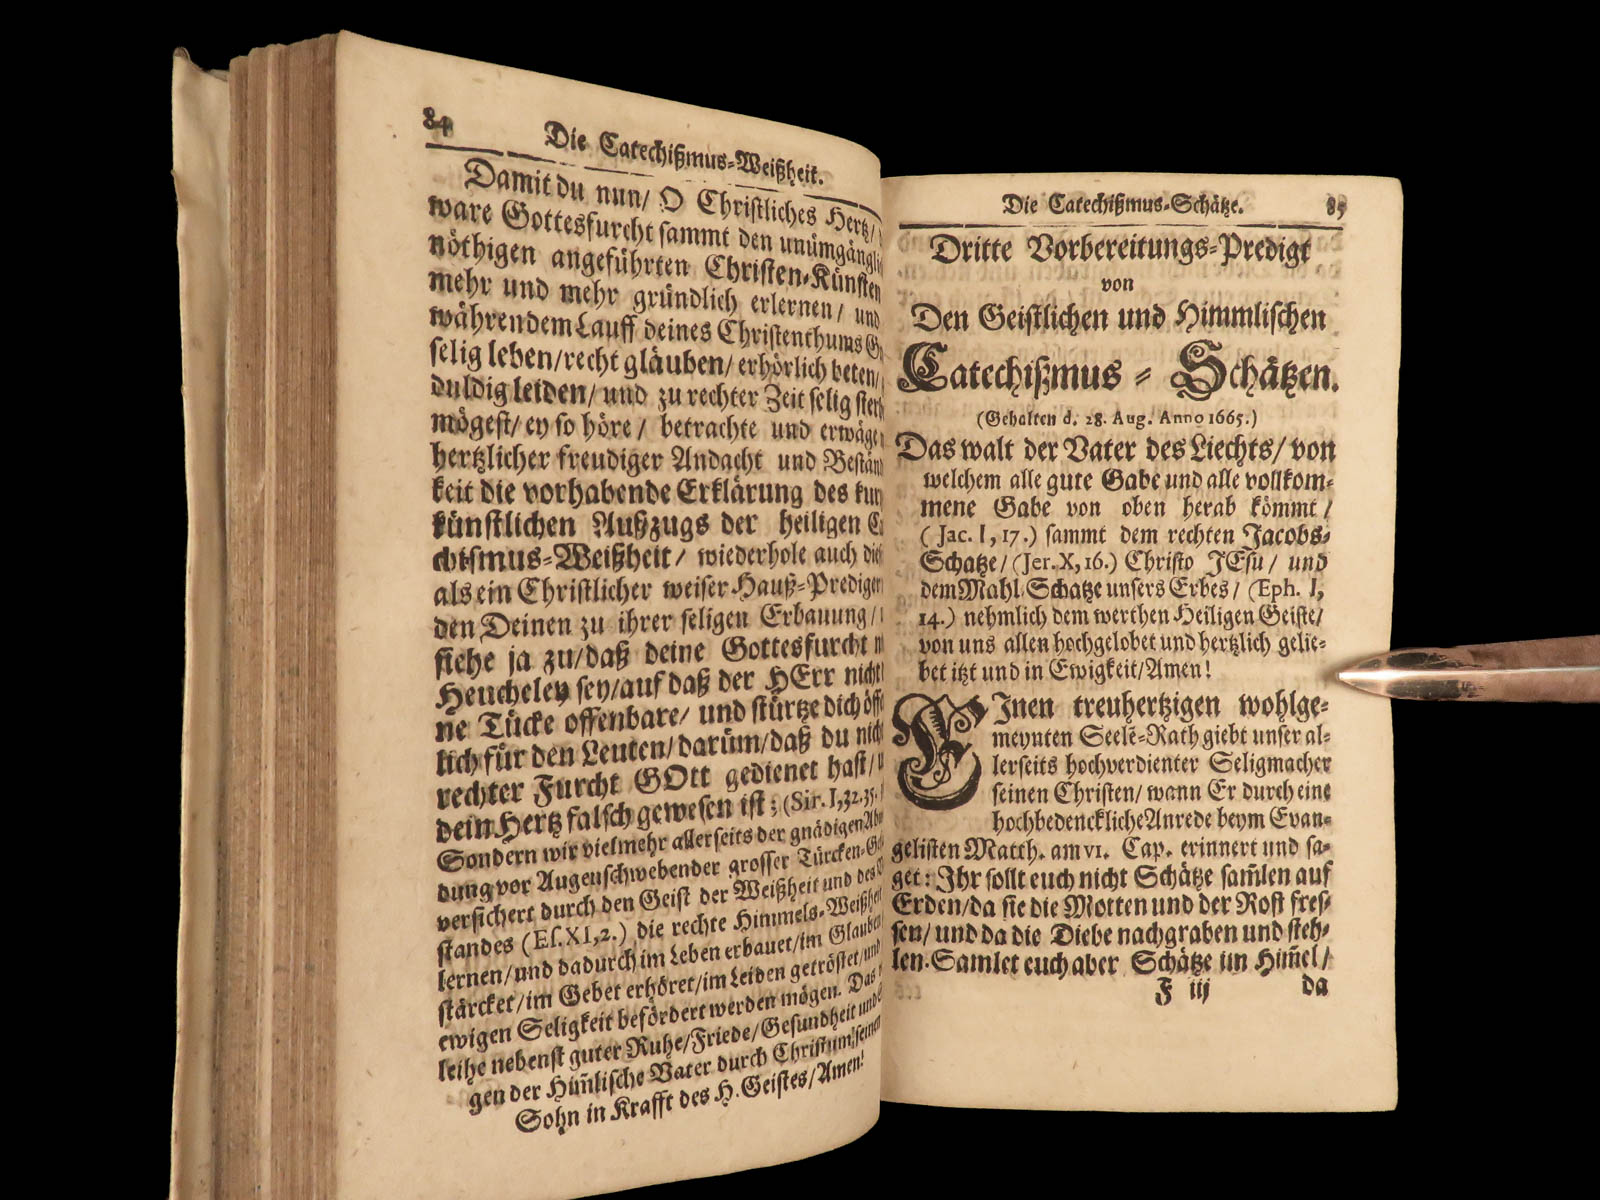 84
Die Catechißmus-Weißheit.
Damit du nun/ O Christliches Hertz/
ware Gottesfurcht sammt den unümgängli
nöthigen angeführten Christen-Künsten
mehr und mehr gründlich erlernen/ und
währendem Lauff deines Christenthums
selig leben/ recht gläuben/ erhörlich beten/
duldig leiden/ und zu rechter Zeit selig sterb
mögest/ ey so höre/ betrachte und erwäge
hertzlicher freudiger Andacht und Bestän
keit die vorhabende Erklärung des kur
künstlichen Außzugs der heiligen C
chismus-Weißheit/ wiederhole auch die
als ein Christlicher weiser Hauß-Prediger
den Deinen zu ihrer seligen Erbauung/
siehe ja zu/ daß deine Gottesfurcht n
Heucheley sey/ auf daß der HErr nicht
ne Tücke offenbare/ und stürtze dich öff
lich für den Leuten/ darüm/ daß du nich
rechter Furcht GOtt gedienet hast/
dein Hertz falsch gewesen ist; (Sir. I, 32. 35.
Sondern wir vielmehr allerseits der gnädigen Ab
dung vor Augen schwebender grosser Türcken-
versichert durch den Geist der Weißheit und des
standes (Es. XI, 2.) die rechte Himmels-Weißhei
lernen/ und dadurch im Leben erbauet/ im Glauben
stärcket/ im Gebet erhöret/ im Leiden getröstet/ und
ewigen Seligkeit befördert werden mögen. Das
leihe nebenst guter Ruhe/ Friede/ Gesundheit und
gen der Him̃lische Vater durch Christum seinen
Sohn in Krafft des H. Geistes/ Amen!
Die Catechißmus-Schätze. 85
Dritte Vorbereitungs-Predigt
von
Den Geistlichen und Himmlischen
Catechißmus-Schätzen.
(Gehalten d. 28. Aug. Anno 1665.)
Das walt der Vater des Liechts/ von
welchem alle gute Gabe und alle vollkom-
mene Gabe von oben herab kömmt/
(Jac. I, 17.) sammt dem rechten Jacobs-
Schatze/ (Jer. X, 16.) Christo JEsu/ und
dem Mahl-Schatze unsers Erbes/ (Eph. I,
14.) nehmlich dem werthen Heiligen Geiste/
von uns allen hochgelobet und hertzlich gelie-
bet itzt und in Ewigkeit/ Amen!
EJnen treuhertzigen wohlge-
meynten Seelē-Rath giebt unser al-
lerseits hochverdienter Seligmacher
seinen Christen/ wann Er durch eine
hochbedenckliche Anrede beym Evan-
gelisten Matth. am VI. Cap. erinnert und sa-
get: Jhr sollt euch nicht Schätze sam̃len auf
Erden/ da sie die Motten und der Rost fres-
sen/ und da die Diebe nachgraben und steh-
len. Samlet euch aber Schätze im Him̃el/
F iij da